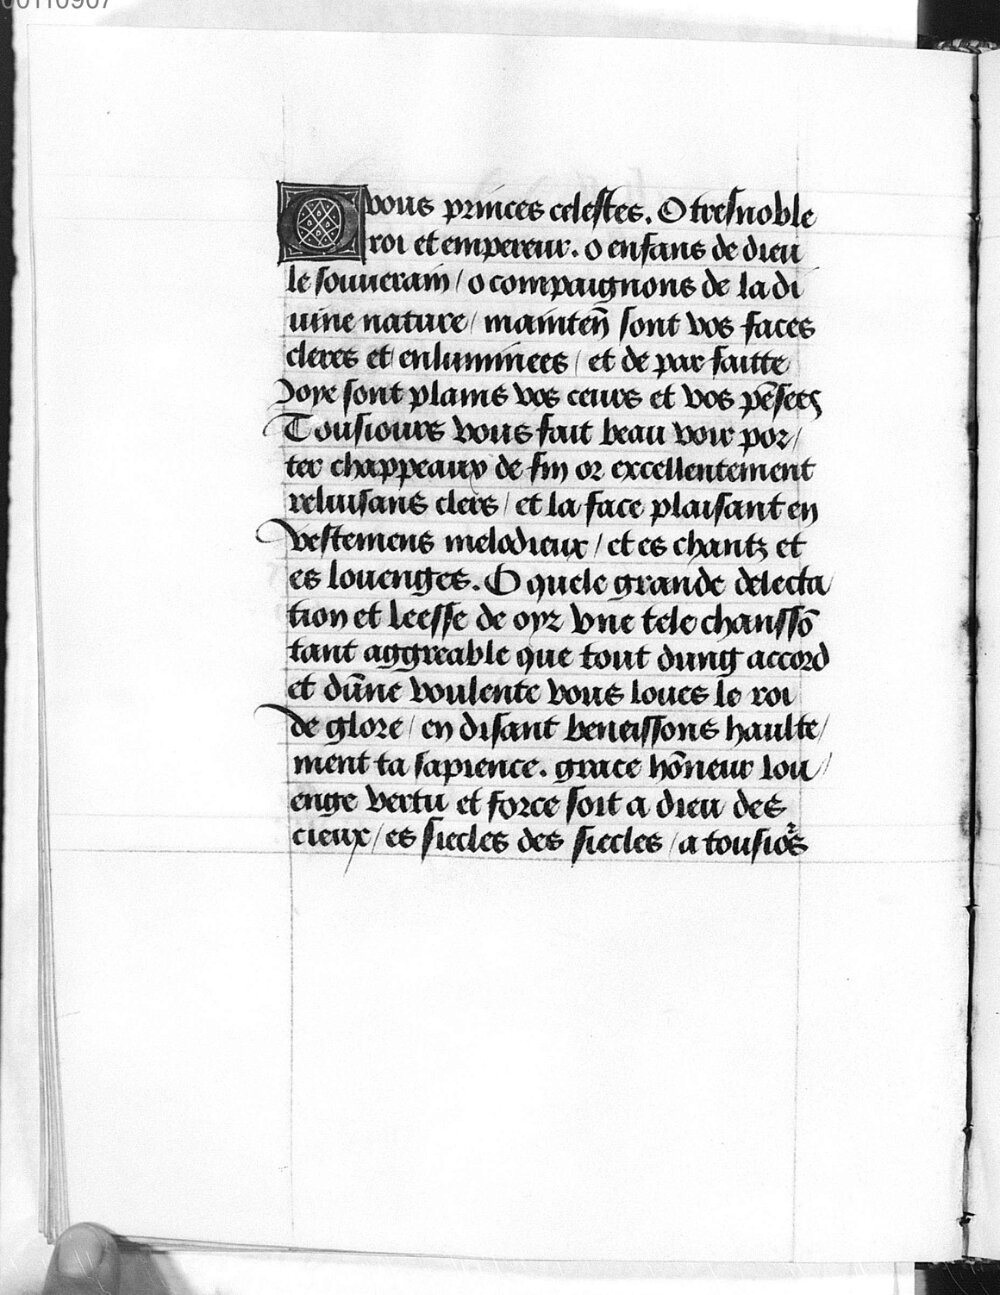 00110907
O vous princes celestes. O tresnoble
roi et empereur. o enfans de dieu
le souuerain / o compaignons de la di
uine nature / mainteñ sont vos faces
cleres et enluminees / et de par faitte
Joye sont plains vos ceurs et vos pēsees
Tousiours vous fait beau voir por/
ter chappeaux de fin or excellentement
reluisans clers / et la face plaisant en
vestemens melodieux / et es chantz et
es louenges. O quele grande delecta
tion et leesse de oyr vne tele chanssō
tant aggreable que tout dung accord
et dūne voulente vous loues le roi
de glore / en disant beneissons haulte/
ment ta sapience. grace hōneur lou/
enge vertu et force soit a dieu des
cieux / es siecles des siecles / a tousioꝛs